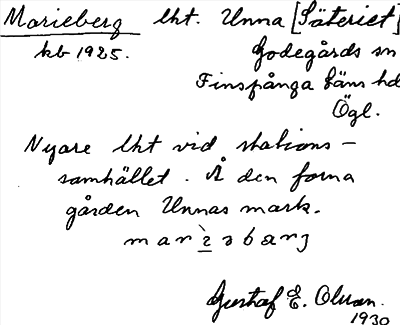 Marieberg lht. Unna [Säteriet]
kb 1925. Godegårds sn
Finspånga läns hd
Ögl.
Nyare lht vid stations-
samhället. Å den forna
gården Unnas mark.
Gustaf E. Olsson.
1930